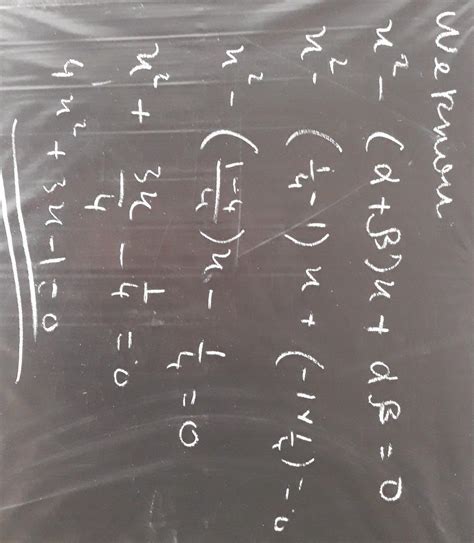 We know
x² - (α + β)x + αβ = 0
x² - (1/4 - 1)x + (-1 × 1/4) = 0
x² - ((1-4)/4)x - 1/4 = 0
x² + 3x/4 - 1/4 = 0
4x² + 3x - 1 = 0